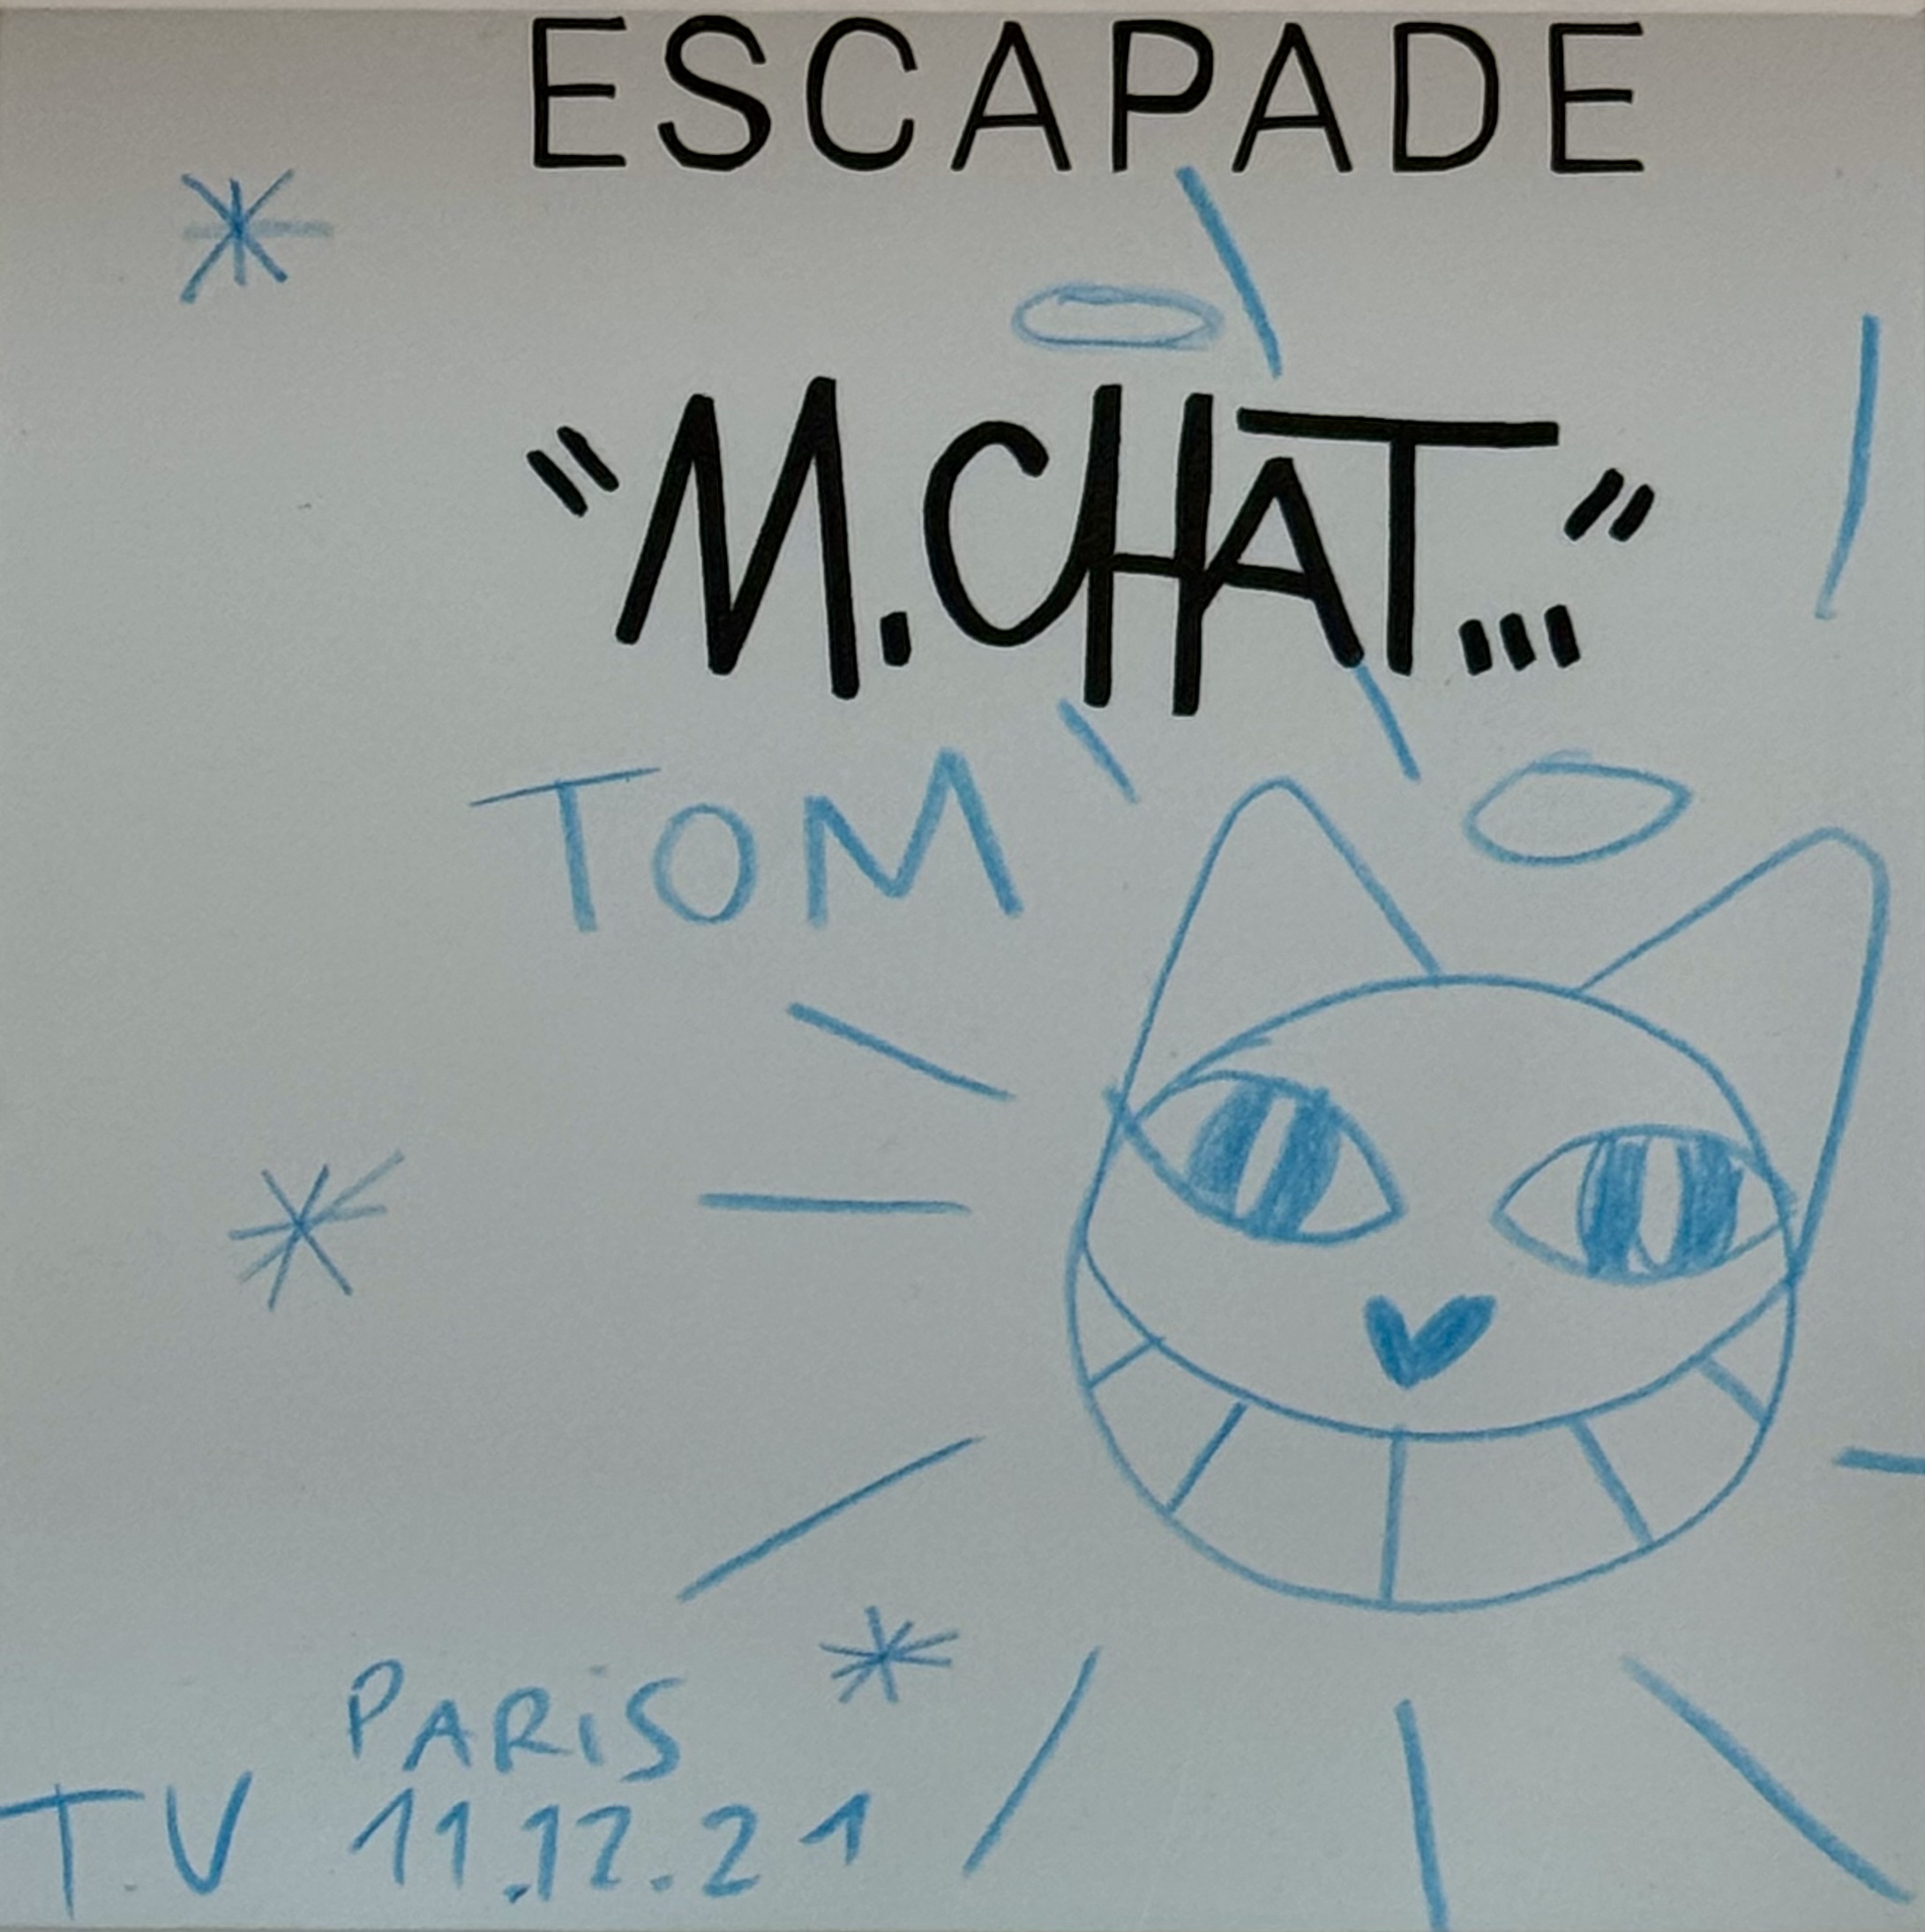 ESCAPADE
"M.CHAT..."
TOM
PARiS
T.V 11.12.21